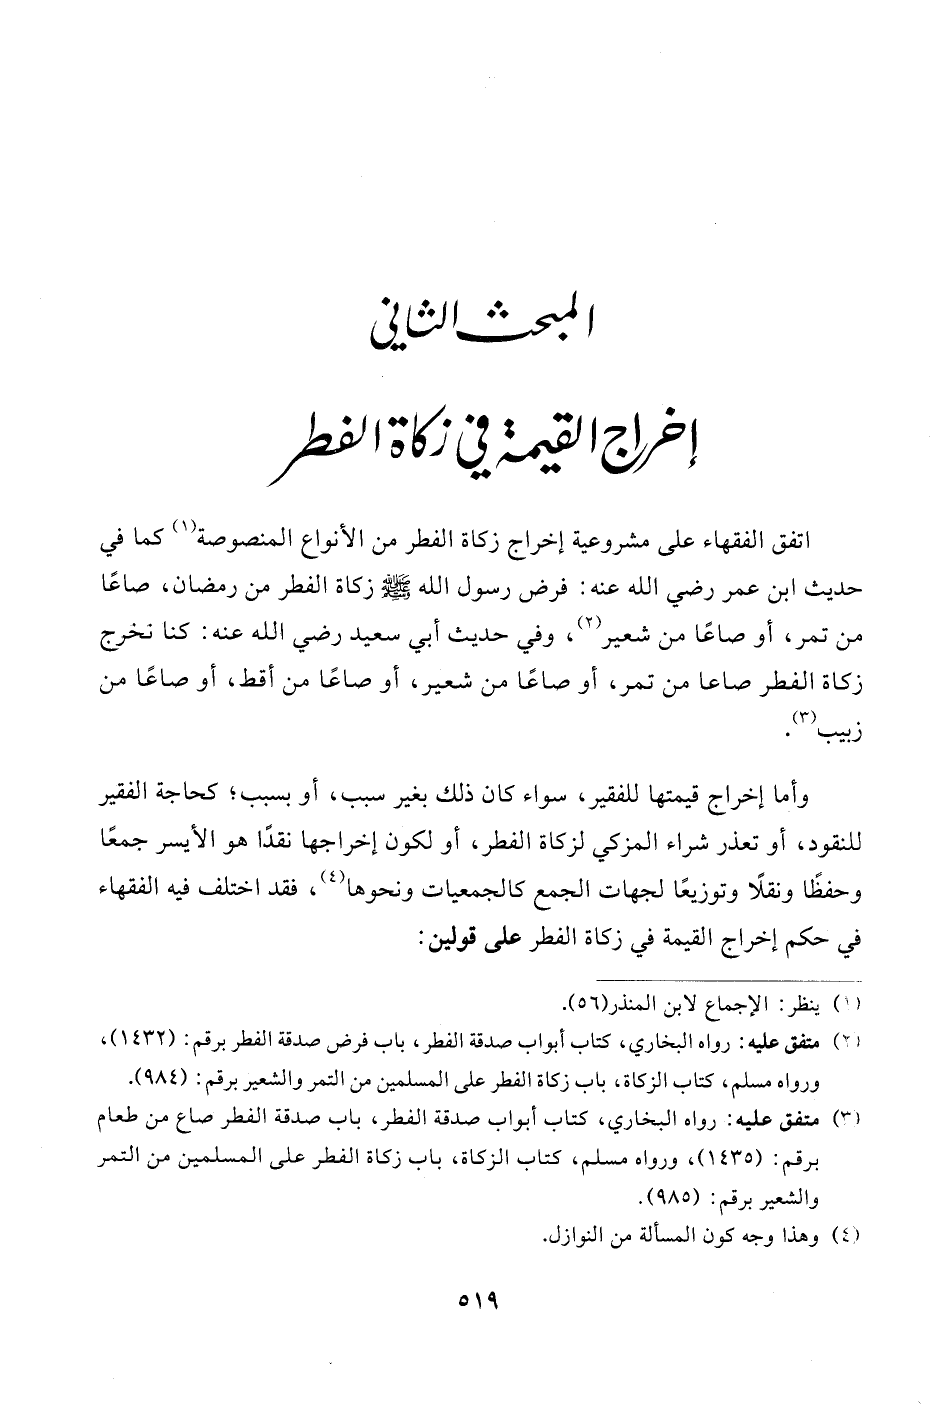 المبحث الثاني
إخراج القيمة في زكاة الفطر
اتفق الفقهاء على مشروعية إخراج زكاة الفطر من الأنواع المنصوصة(١) كما في
حديث ابن عمر رضي الله عنه: فرض رسول الله ﷺ زكاة الفطر من رمضان، صاعًا
من تمر، أو صاعًا من شعير(٢)، وفي حديث أبي سعيد رضي الله عنه: كنا نخرج
زكاة الفطر صاعا من تمر، أو صاعًا من شعير، أو صاعًا من أقط، أو صاعًا من
زبيب(٣).
وأما إخراج قيمتها للفقير، سواء كان ذلك بغير سبب، أو بسبب؛ كحاجة الفقير
للنقود، أو تعذر شراء المزكي لزكاة الفطر، أو لكون إخراجها نقدًا هو الأيسر جمعًا
وحفظًا ونقلًا وتوزيعًا لجهات الجمع كالجمعيات ونحوها(٤)، فقد اختلف فيه الفقهاء
في حكم إخراج القيمة في زكاة الفطر على قولين:
(١) ينظر: الإجماع لابن المنذر(٥٦).
(٢) متفق عليه: رواه البخاري، كتاب أبواب صدقة الفطر، باب فرض صدقة الفطر برقم: (١٤٣٢)،
ورواه مسلم، كتاب الزكاة، باب زكاة الفطر على المسلمين من التمر والشعير برقم: (٩٨٤).
(٣) متفق عليه: رواه البخاري، كتاب أبواب صدقة الفطر، باب صدقة الفطر صاع من طعام
برقم: (١٤٣٥)، ورواه مسلم، كتاب الزكاة، باب زكاة الفطر على المسلمين من التمر
والشعير برقم: (٩٨٥).
(٤) وهذا وجه كون المسألة من النوازل.
٥١٩